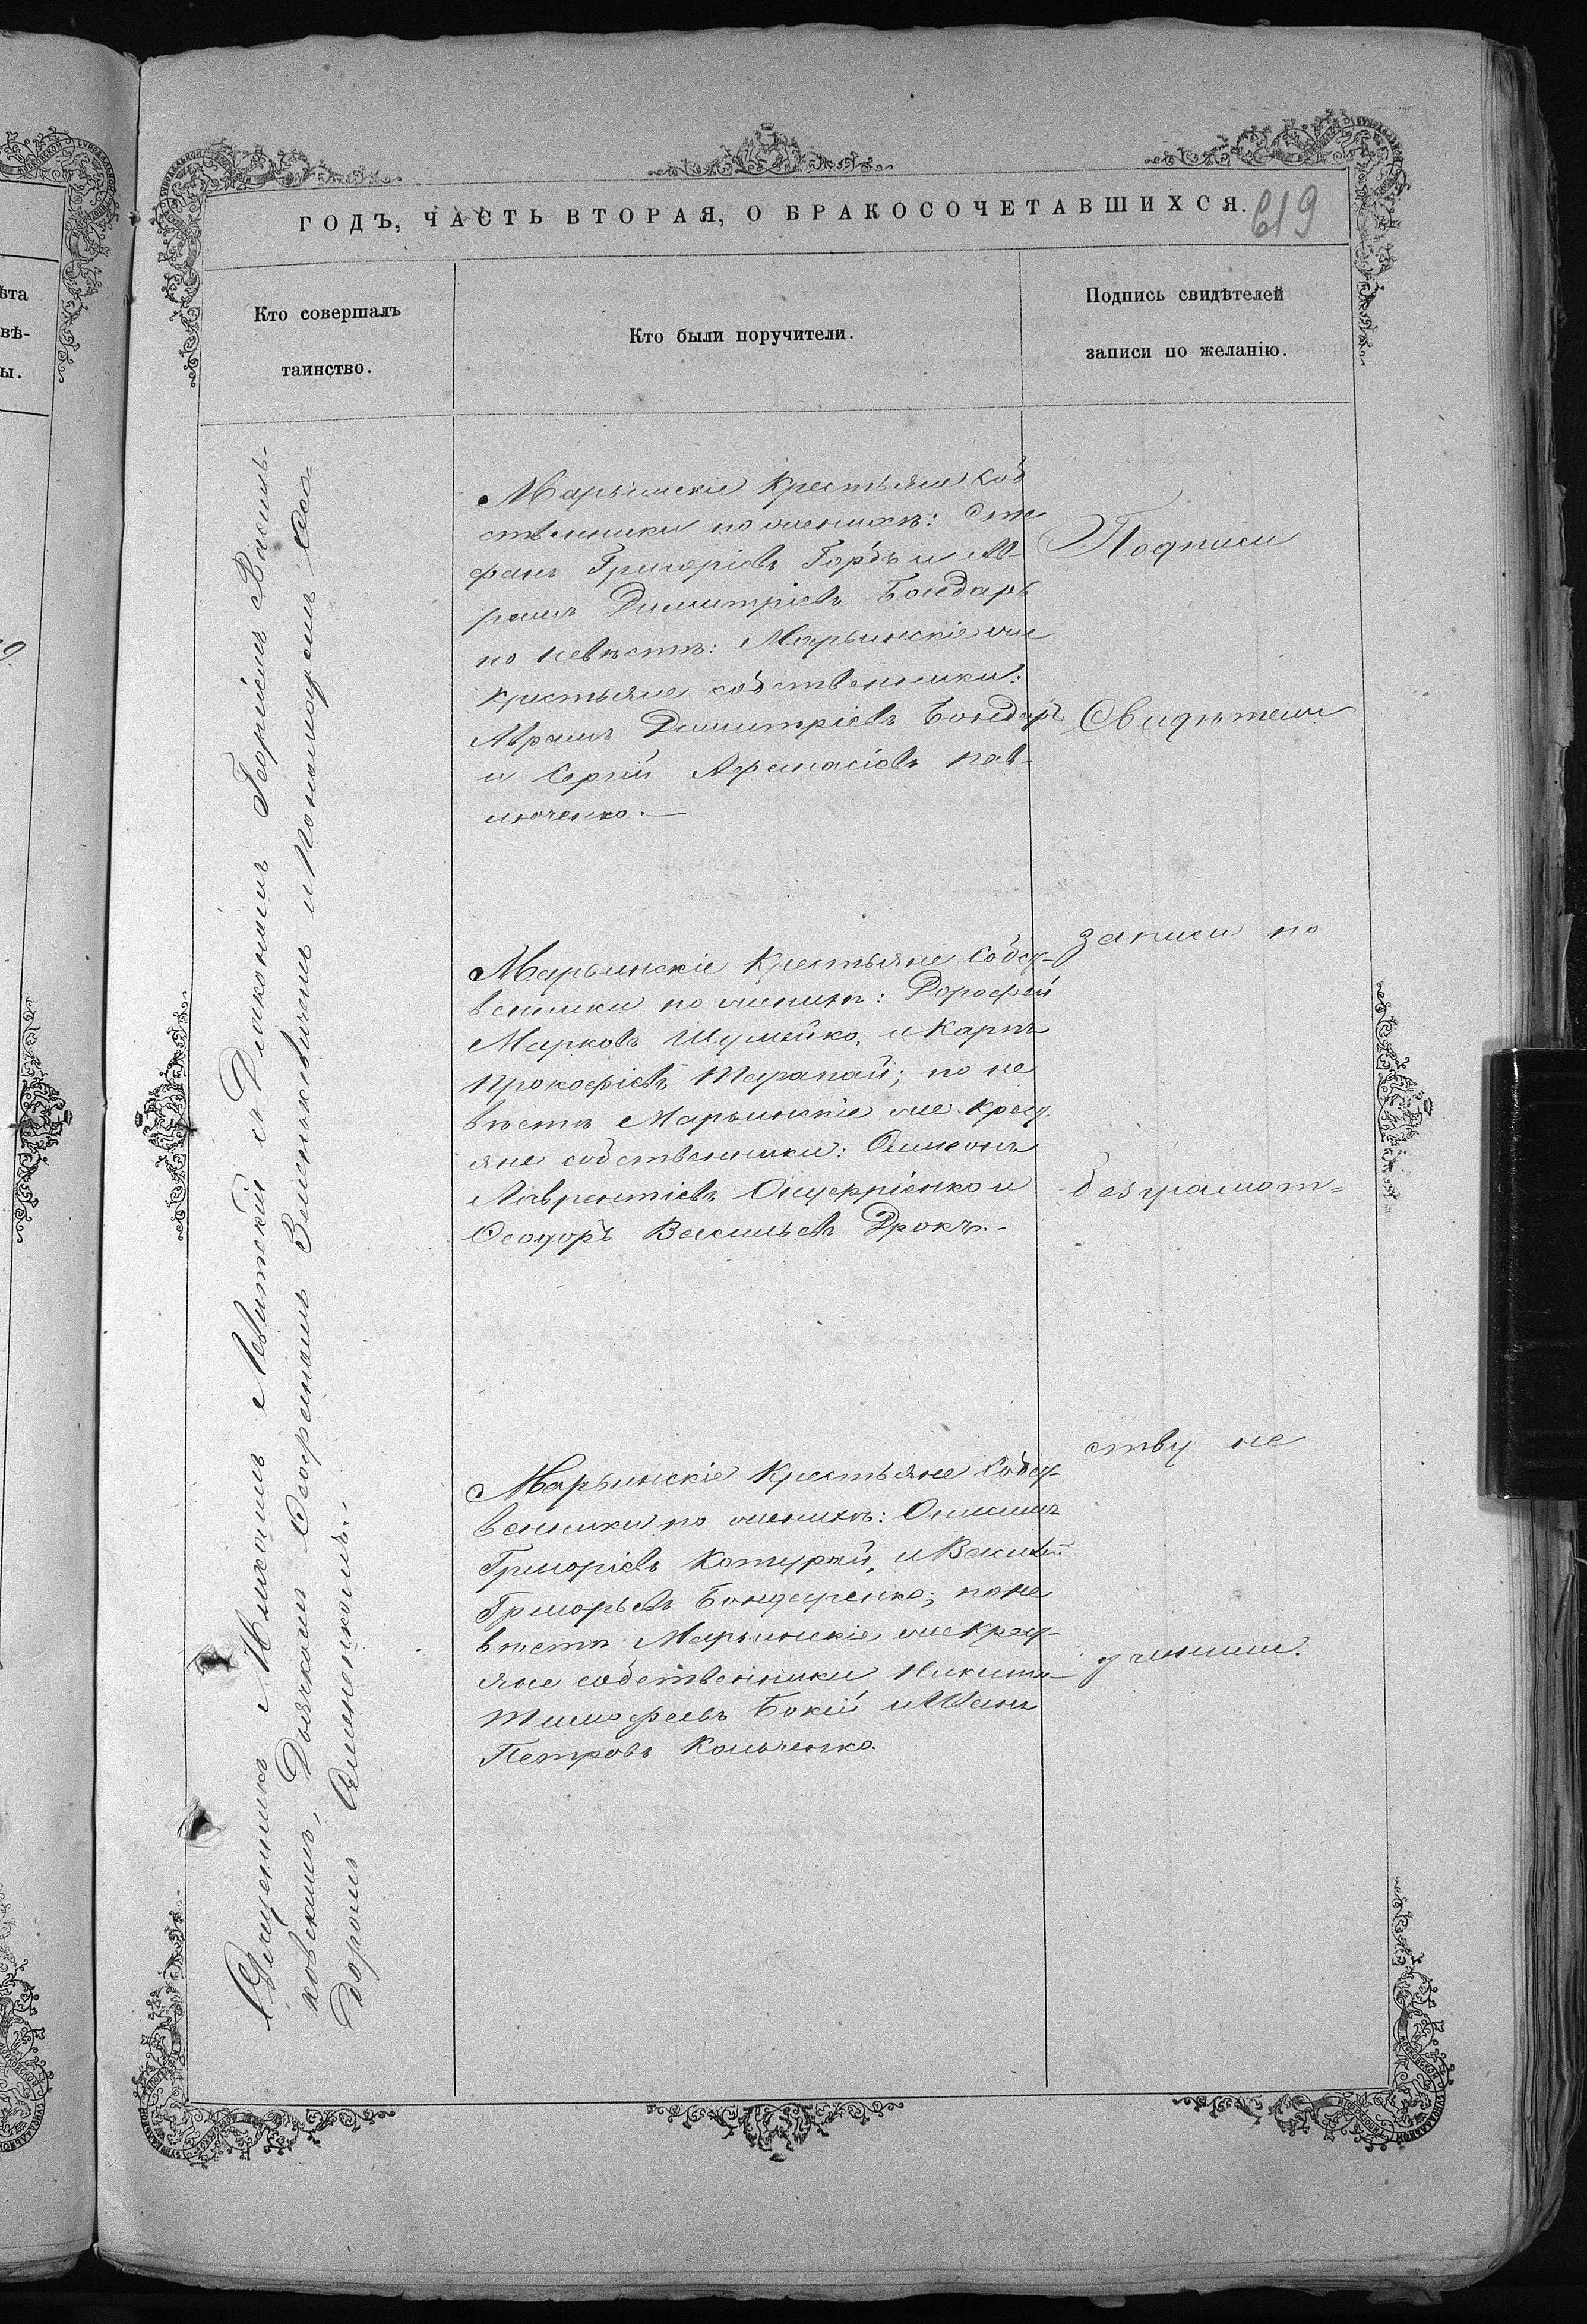 ГОДЪ, ЧАСТЬ ВТОРАЯ, О БРАКОСОЧЕТАВШИХСЯ.
619
Кто совершалъ
таинство.
Кто были поручители.
Подпись свидѣтелей
записи по желанію.
ѣта
вѣ-
ы.
Священникъ Михаилъ Левитскій съ Діакономъ Георгіемъ Василь-
ковскимъ, Дьячкомъ Стефаномъ Зиньковичемъ и Пономаремъ Ѳео-
доромъ Симоненкомъ.
Марьинскіе Крестьяне Соб
ственники по женихѣ: Сте
фанъ Григоріевъ Горбъ и Ав-
рамъ Димитріевъ Бондарь
по невѣстѣ: Марьинскіе же
крестьяне собственники:
Аврамъ Димитріевъ Бондарь
и Сергій Аѳанасіевъ Пав-
люченко.—
Марьинскіе Крестьяне Собст-
венники по женихѣ: Дороѳей
Марковъ Шумейко, и Карпъ
Прокофіевъ Тарапай; по не
вѣстѣ Марьинскіе же крест
яне собственники: Симеонъ
Лаврентіевъ Онуфріенко и
Ѳеодоръ Васильевъ Дрокъ.-
Марьинскіе Крестьяне Собст-
венники по женихѣ: Онисимъ
Григоріевъ и Василій
Григорьевъ Бондаренко; по не
вѣстѣ Марьинскіе же Крест-
яне собственники Никита
Тимофеевъ Бокій и Иванъ
Петровъ Кольченко.
Подписи
Свидѣтели
записи по
безграмот=
ству не
учинили.